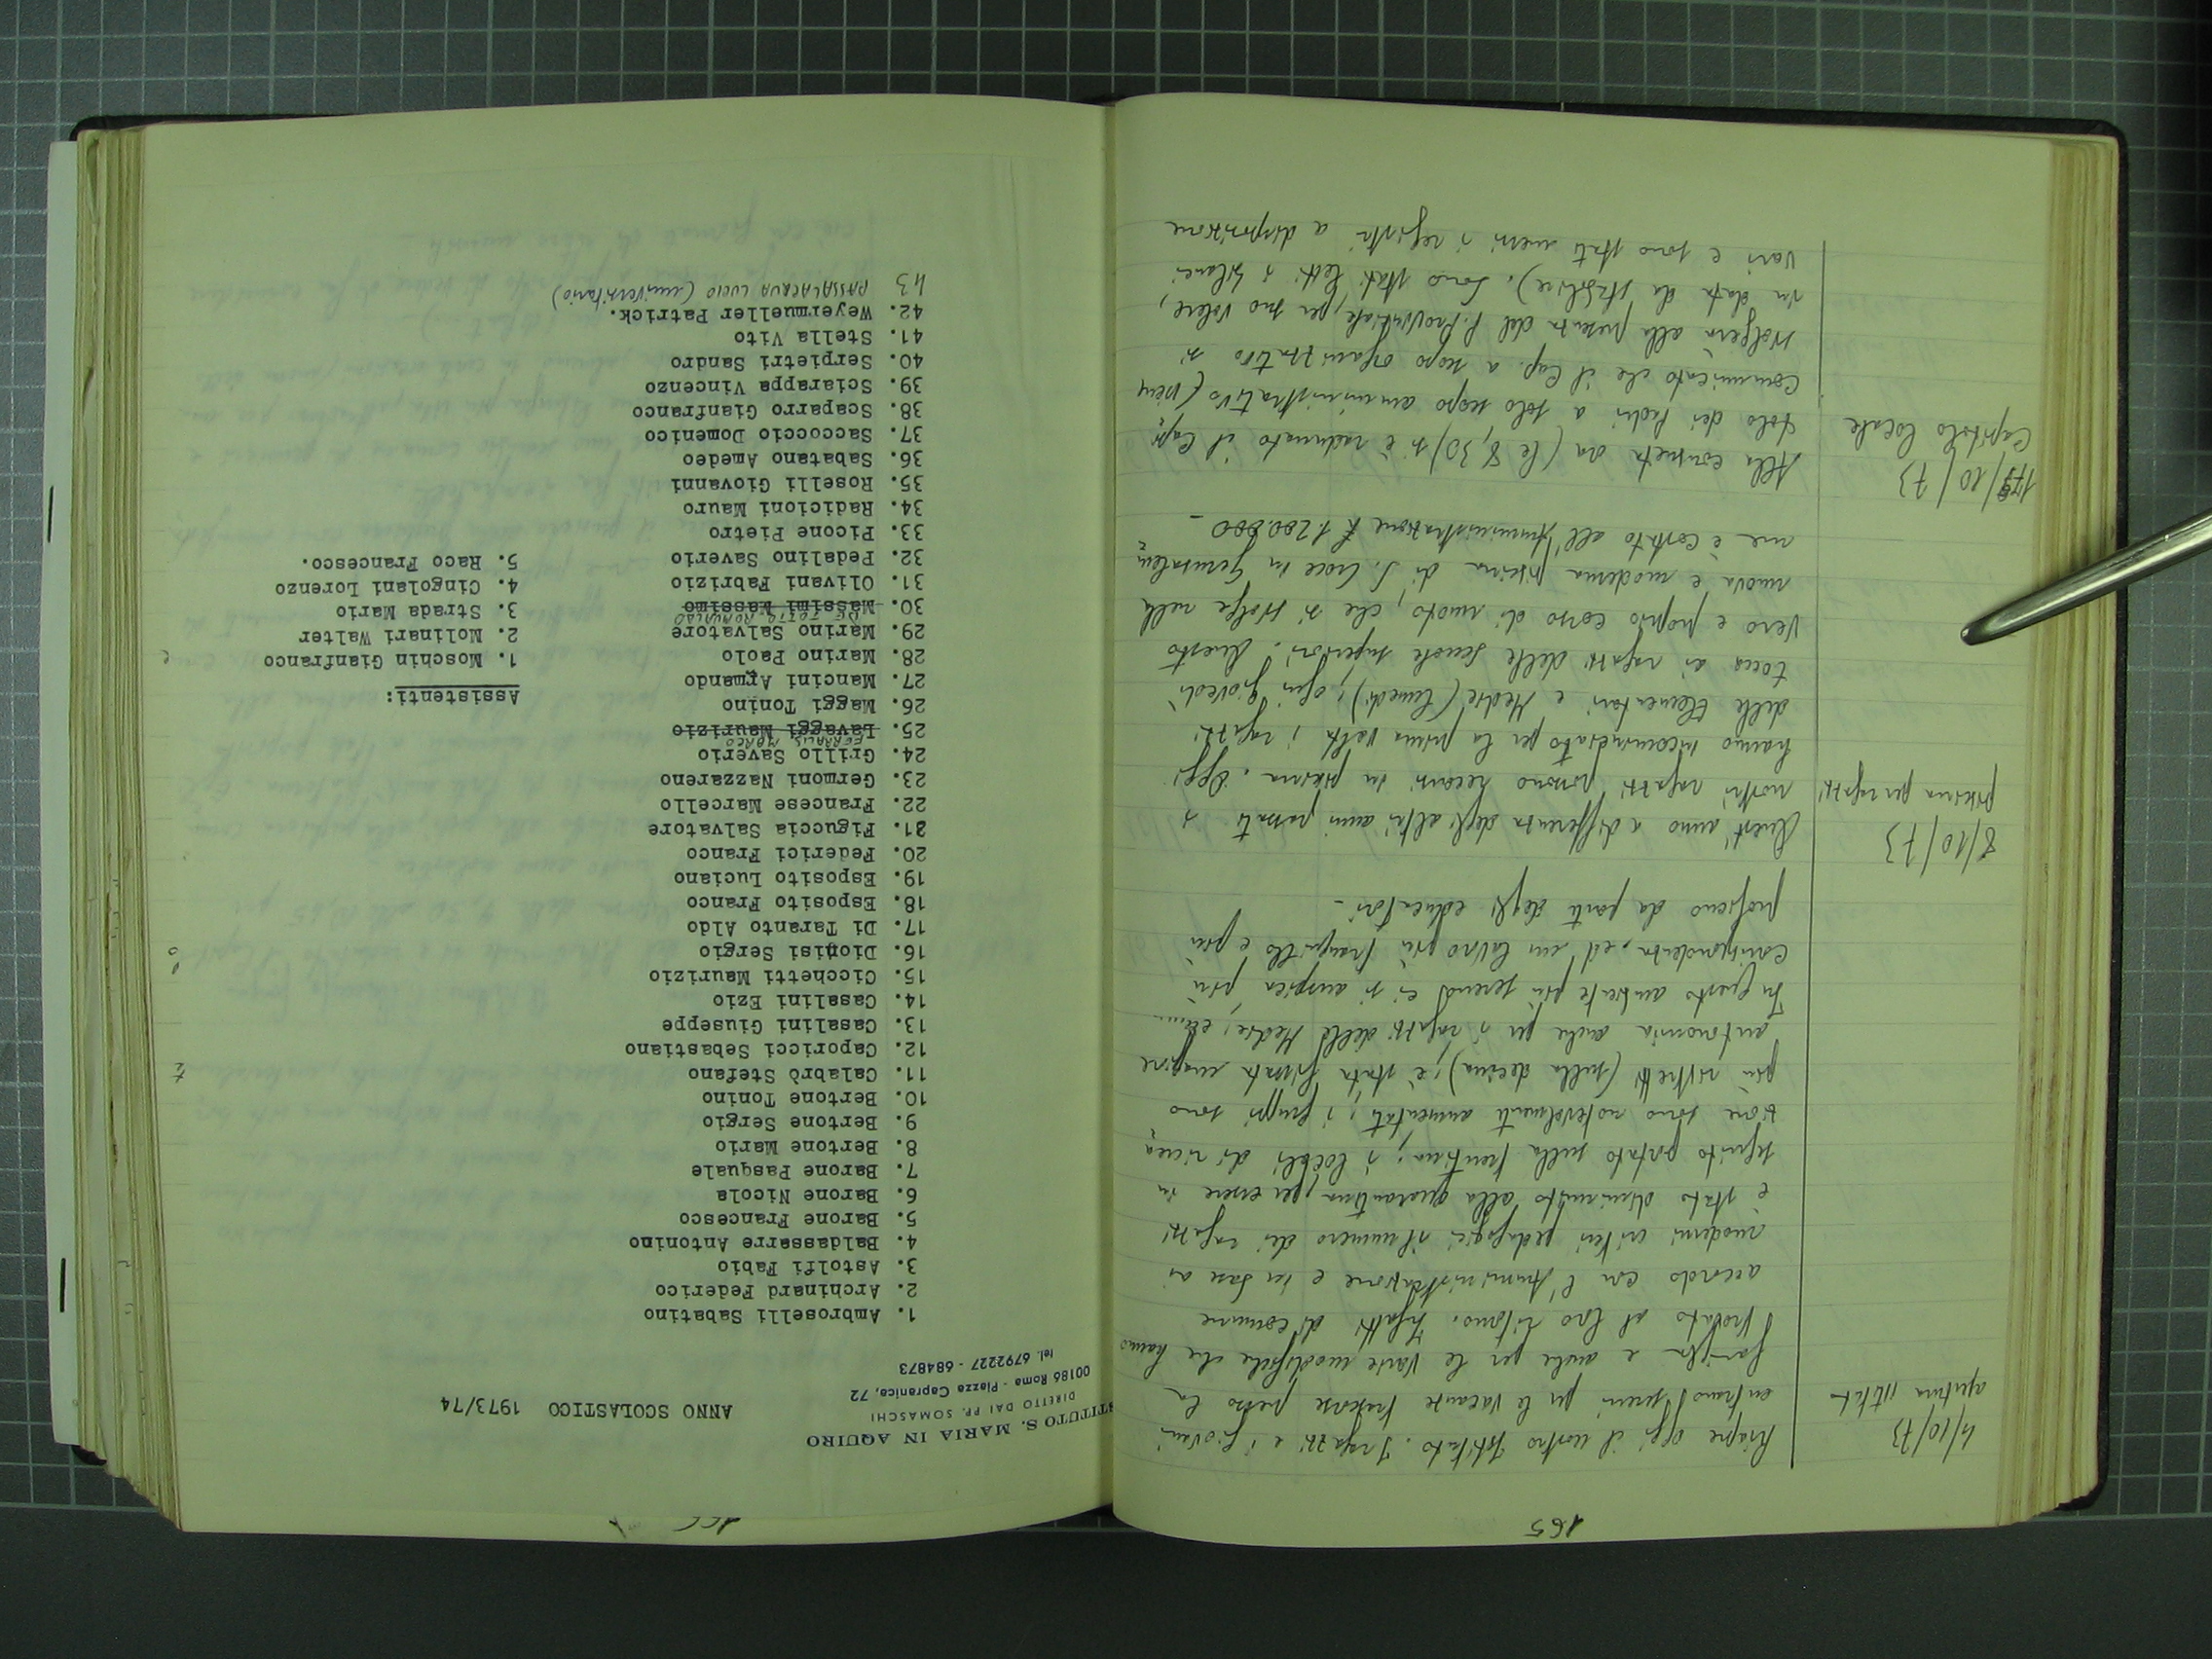 165
4/10/73
apertura istituto
Riapre oggi il nostro Istituto. I ragazzi e i giovani
entrano sereni per le vacanze trascorse presso la
famiglia e anche per le varie modifiche che hanno
trovato al loro ritorno. Infatti di comune
accordo con l'Amministrazione e in base ai
moderni criteri pedagogici il numero dei ragazzi
è stato diminuito alla quarantina, per essere in
seguito portato sulla trentina; i locali di ricrea
zione sono notevolmente aumentati; i gruppi sono
più ristretti (sulla decina); è stata fissata maggiore
autonomia anche per i ragazzi delle Medie;
In questo ambiente più sereno ci si auspica più
corrispondenza, ed un lavoro più tranquillo e più
proficuo da parte degli educatori -
8/10/73
piscina per ragazzi
Quest'anno a differenza degli altri anni passati i
nostri ragazzi possono recarsi in piscina. Oggi
hanno incominciato per la prima volta i ragazzi
delle Elementari e Medie (lunedì); ogni giovedì
tocca ai ragazzi delle scuole superiori. Questo
vero e proprio corso di nuoto, che si svolge nella
nuova e moderna piscina di S. Croce in Gerusalem
me è costato all'Amministrazione £ 1.200.000 -
/10/73
Capitolo locale
Alla consueta ora (le 8,30) si è radunato il Capi
tolo dei Padri a solo scopo amministrativo (viene
comunicato che il Cap. a scopo organizzativo si
svolgerà alla presenza del P. Provinciale, per suo volere,
in data da stabilire). Sono stati letti i bilanci
vari e sono stati messi i registri a disposizione
166
TITUTO S. MARIA IN AQUIRO
DIRETTO DAI PP. SOMASCHI
00186 Roma - Piazza Capranica, 72
tel. 6792227 - 684873
ANNO SCOLASTICO 1973/74
1. Ambroselli Sabatino
2. Archinard Federico
3. Astolfi Fabio
4. Baldassarre Antonino
5. Barone Francesco
6. Barone Nicola
7. Barone Pasquale
8. Bertone Mario
9. Bertone Sergio
10. Bertone Tonino
11. Calabrò Stefano
12. Caporicci Sebastiano
13. Casalini Giuseppe
14. Casalini Ezio
15. Cicchetti Maurizio
16. Dionisi Sergio
17. Di Taranto Aldo
18. Esposito Franco
19. Esposito Luciano
20. Federici Franco
21. Figuccia Salvatore
22. Francese Marcello
23. Germoni Nazzareno
24. Grillo Saverio
FERRALIS MARCO
25. Lavaggi Maurizio
26. Maggi Tonino
27. Mancini Armando
28. Marino Paolo
29. Marino Salvatore
DE TOTTO ROMUALDO
30. Massimi Massimo
31. Olivani Fabrizio
32. Pedalino Saverio
33. Picone Pietro
34. Radicioni Mauro
35. Roselli Giovanni
36. Sabatano Amedeo
37. Saccoccio Domenico
38. Scaparro Gianfranco
39. Sciarappa Vincenzo
40. Serpietri Sandro
41. Stella Vito
42. Weyermueller Patrick.
43 PASSALACQUA LUCIO (universitario)
Assistenti:
1. Moschin Gianfranco
2. Molinari Walter
3. Strada Mario
4. Cingolani Lorenzo
5. Raco Francesco.